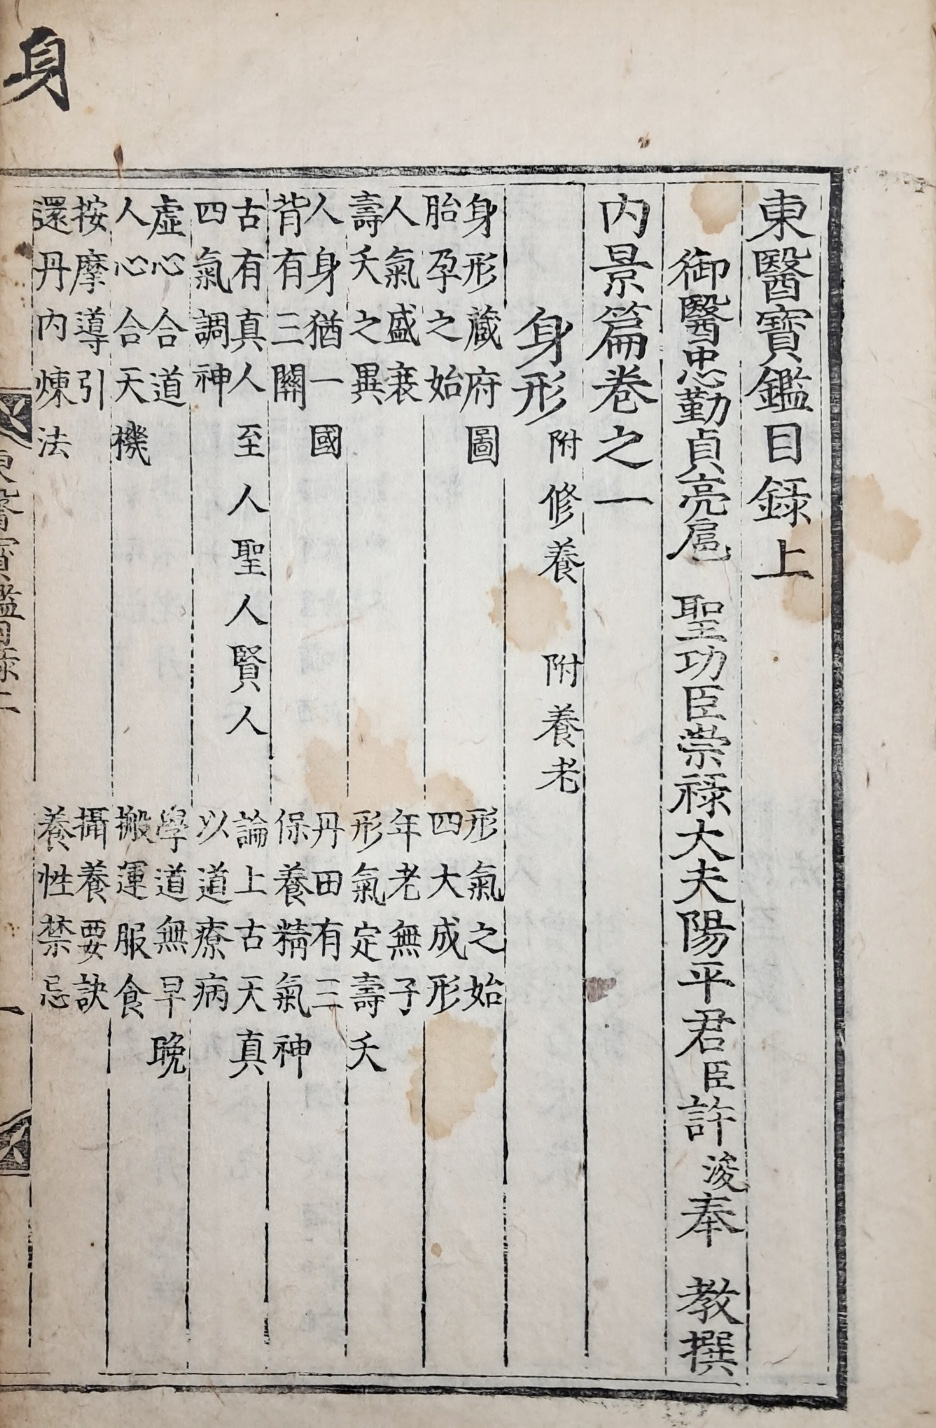 身
東醫寶鑑目錄上
御醫忠勤貞亮扈 聖功臣崇祿大夫陽平君臣許浚奉 教撰
内景篇卷之一
身形 附修養 附養老
身形藏府圖 形氣之始
胎孕之始 四大成形
人氣盛衰 年老無子
壽夭之異 形氣定壽夭
人身猶一國 丹田有三
背有三關 保養精氣神
古有真人至人聖人賢人 論上古天真
四氣調神 以道療病
虛心合道 學道無早晩
人心合天機 搬運服食
按摩導引 攝養要訣
還丹内煉法 養性禁忌
東醫寶鑑目錄上 一